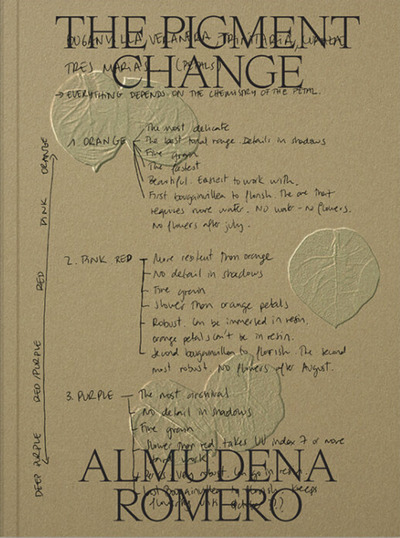 THE PIGMENT
CHANGE
TRES MARÍAS (PETALS)
→ EVERYTHING DEPENDS ON THE CHEMISTRY OF THE PETAL.
ORANGE
PINK
RED
RED/PURPLE
DEEP PURPLE
1. ORANGE
The most delicate
The best tonal range. Details in shadows
Fine grain
The fastest
Beautiful. Easiest to work with.
First bougainvillea to flourish. The one that
requires more water. No water - No flowers.
No flowers after july.
2. PINK RED
More resilient than orange
No detail in shadows
Fine grown
Slower than orange petals
Robust. Can be immersed in resin,
orange petals can't be in resin.
Second bougainvillea to flourish. The second
most robust No flowers after August.
3. PURPLE
The most
No detail in shadows
Fine grown
Slower than red, takes UV index 7 or more
ALMUDENA
ROMERO